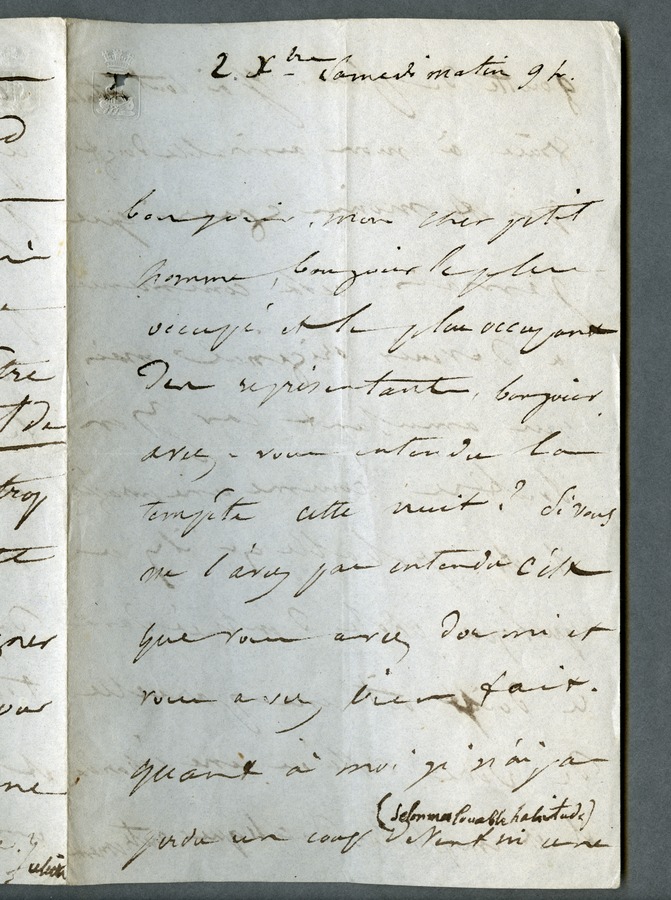 2. Xbre Samedi matin 9 h.
bonjour, mon cher petit
homme, bonjour le plus
occupé et le plus occupant
des représentants, bonjour,
avez-vous entendu la
tempête cette nuit ? Si vous
ne l'avez pas entendu c'est
que vous avez dormi et
vous avez bien fait.
quant à moi je n'ai pas
(selon ma louable habitude)
perdu un coup de Vent ni une
tre
trop